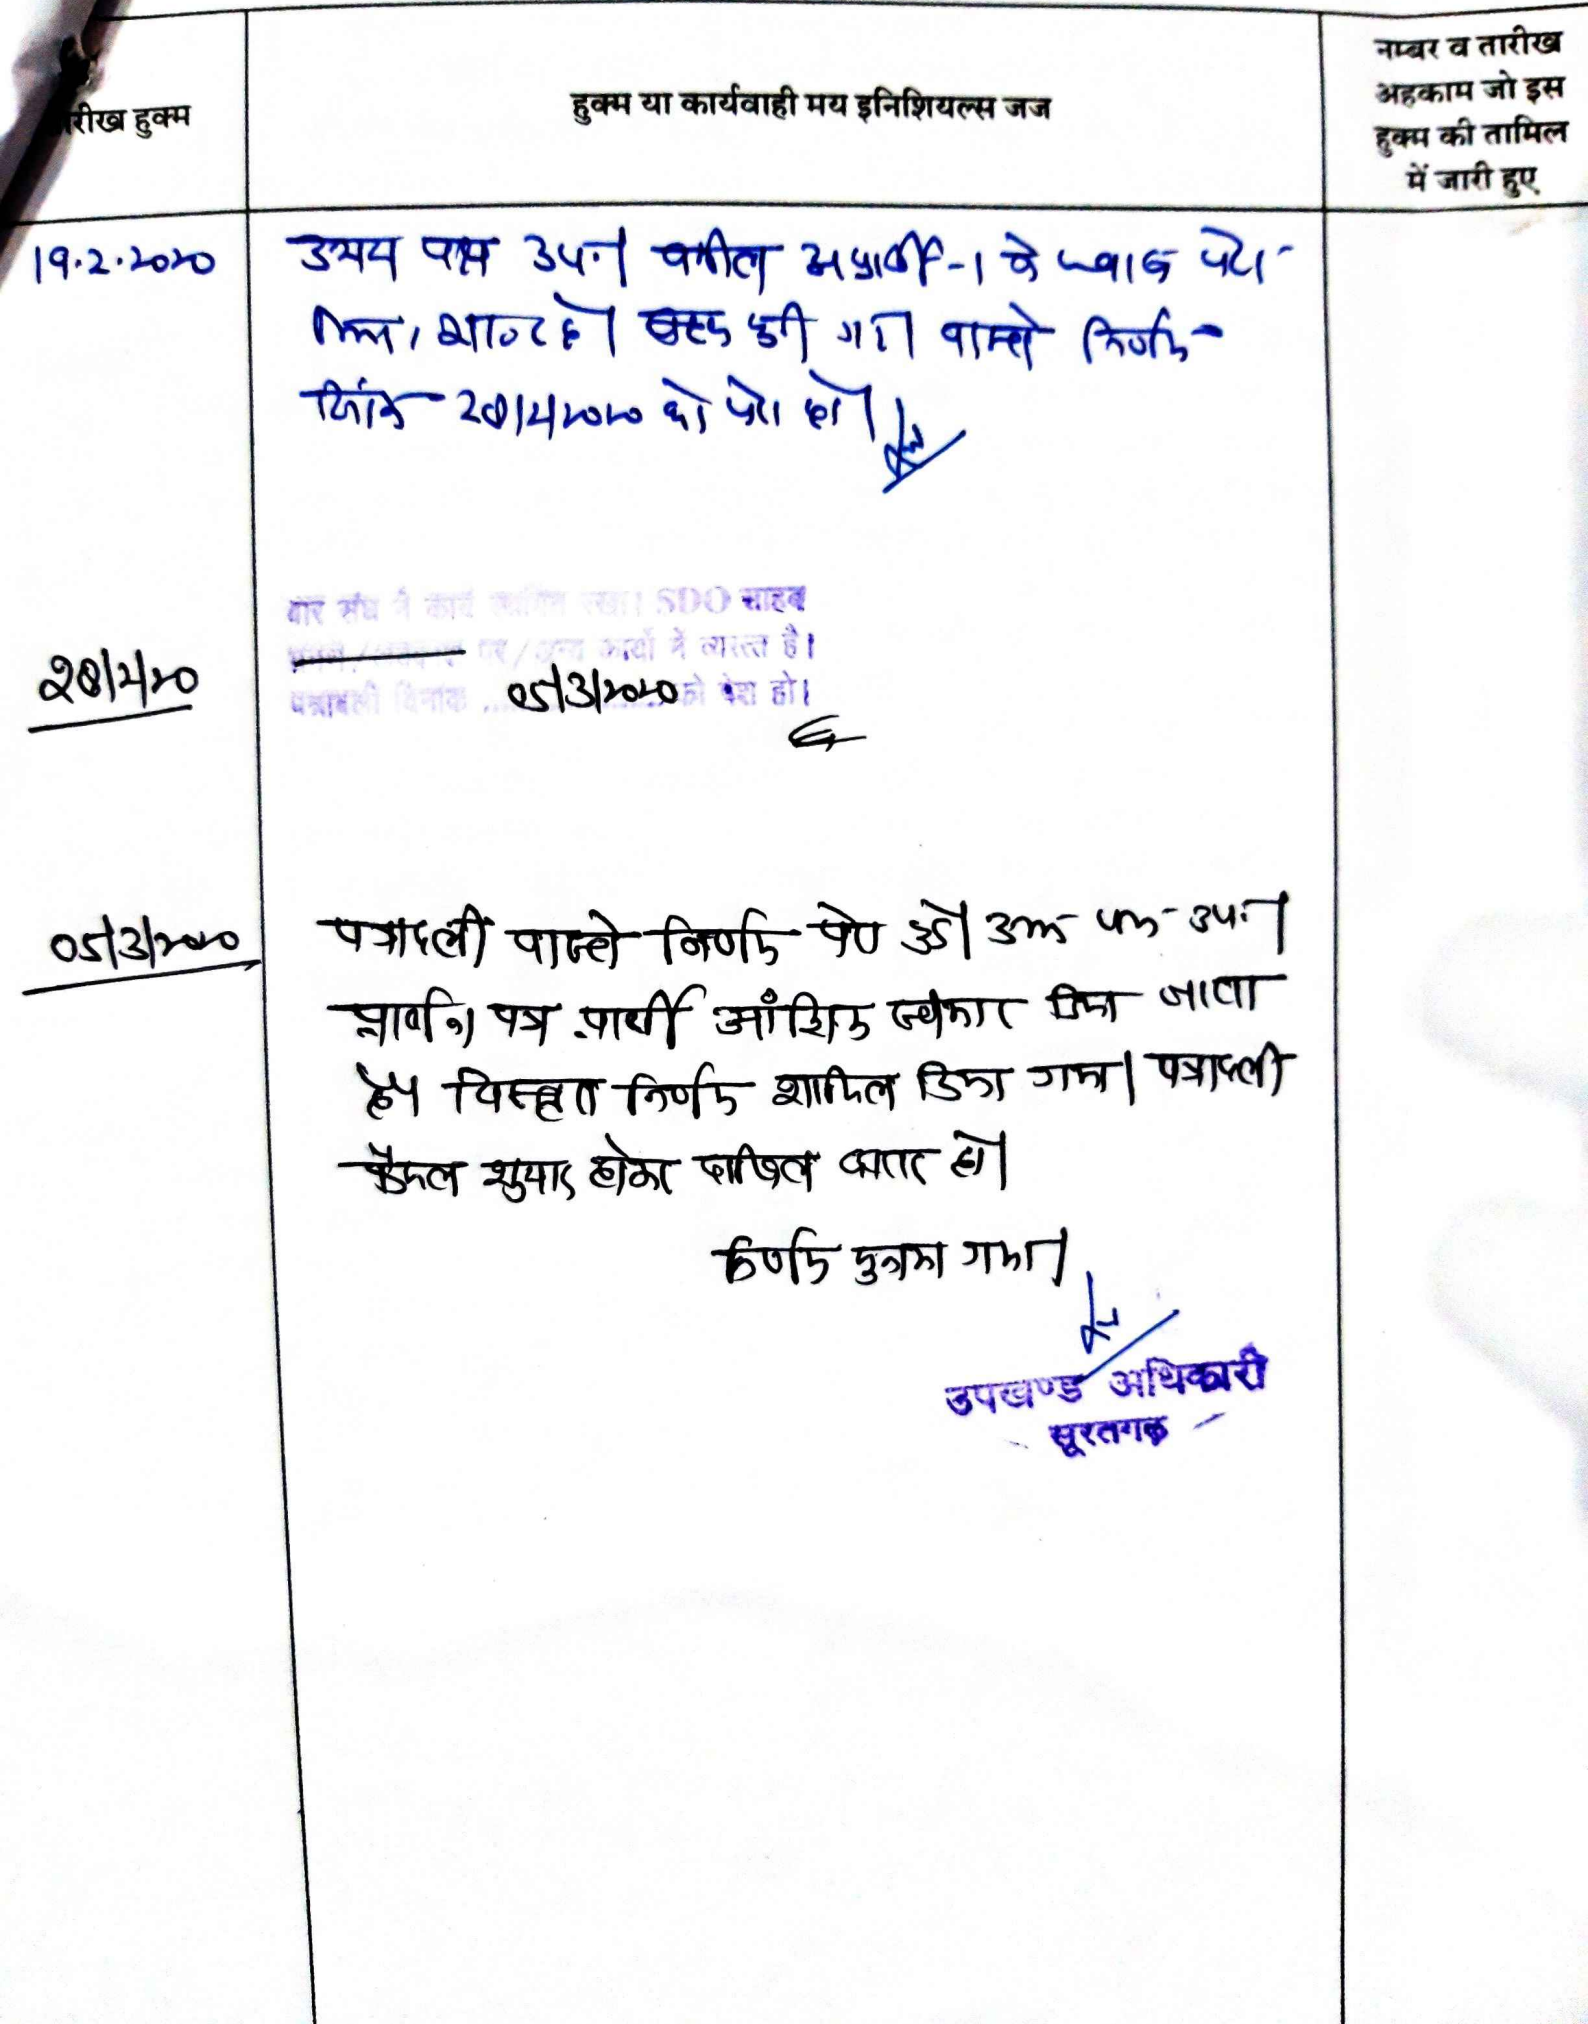 रीख हुक्म
हुक्म या कार्यवाही मय इनिशियल्स जज
नम्बर व तारीख
अहकाम जो इस
हुक्म की तामिल
में जारी हुए
19.2.2020
उभय पक्ष उप.। वकील अप्रार्थी-1 ने जवाब पेश
किया, शा०ट हो। बहस सुनी गई। वास्ते निर्णय
दिनांक 28/2/2020 को पेश हो।
बार संघ ने कार्य स्थगित रखा। SDO साहब
पर/अन्य कार्यो में व्यस्त है।
28/2/20
पत्रावली दिनांक 05/3/2020 को पेश हो।
05/3/2020
पत्रावली वास्ते निर्णय पेश हुई। उभय पक्ष उप.।
प्रार्थना पत्र प्रार्थी आँशिक स्वीकार किया जाता
है। विस्तृत निर्णय शामिल किया गया। पत्रावली
फैसल शुमार होकर दाखिल दफ्तर हो।
निर्णय सुनाया गया।
उपखण्ड अधिकारी
सूरतगढ़